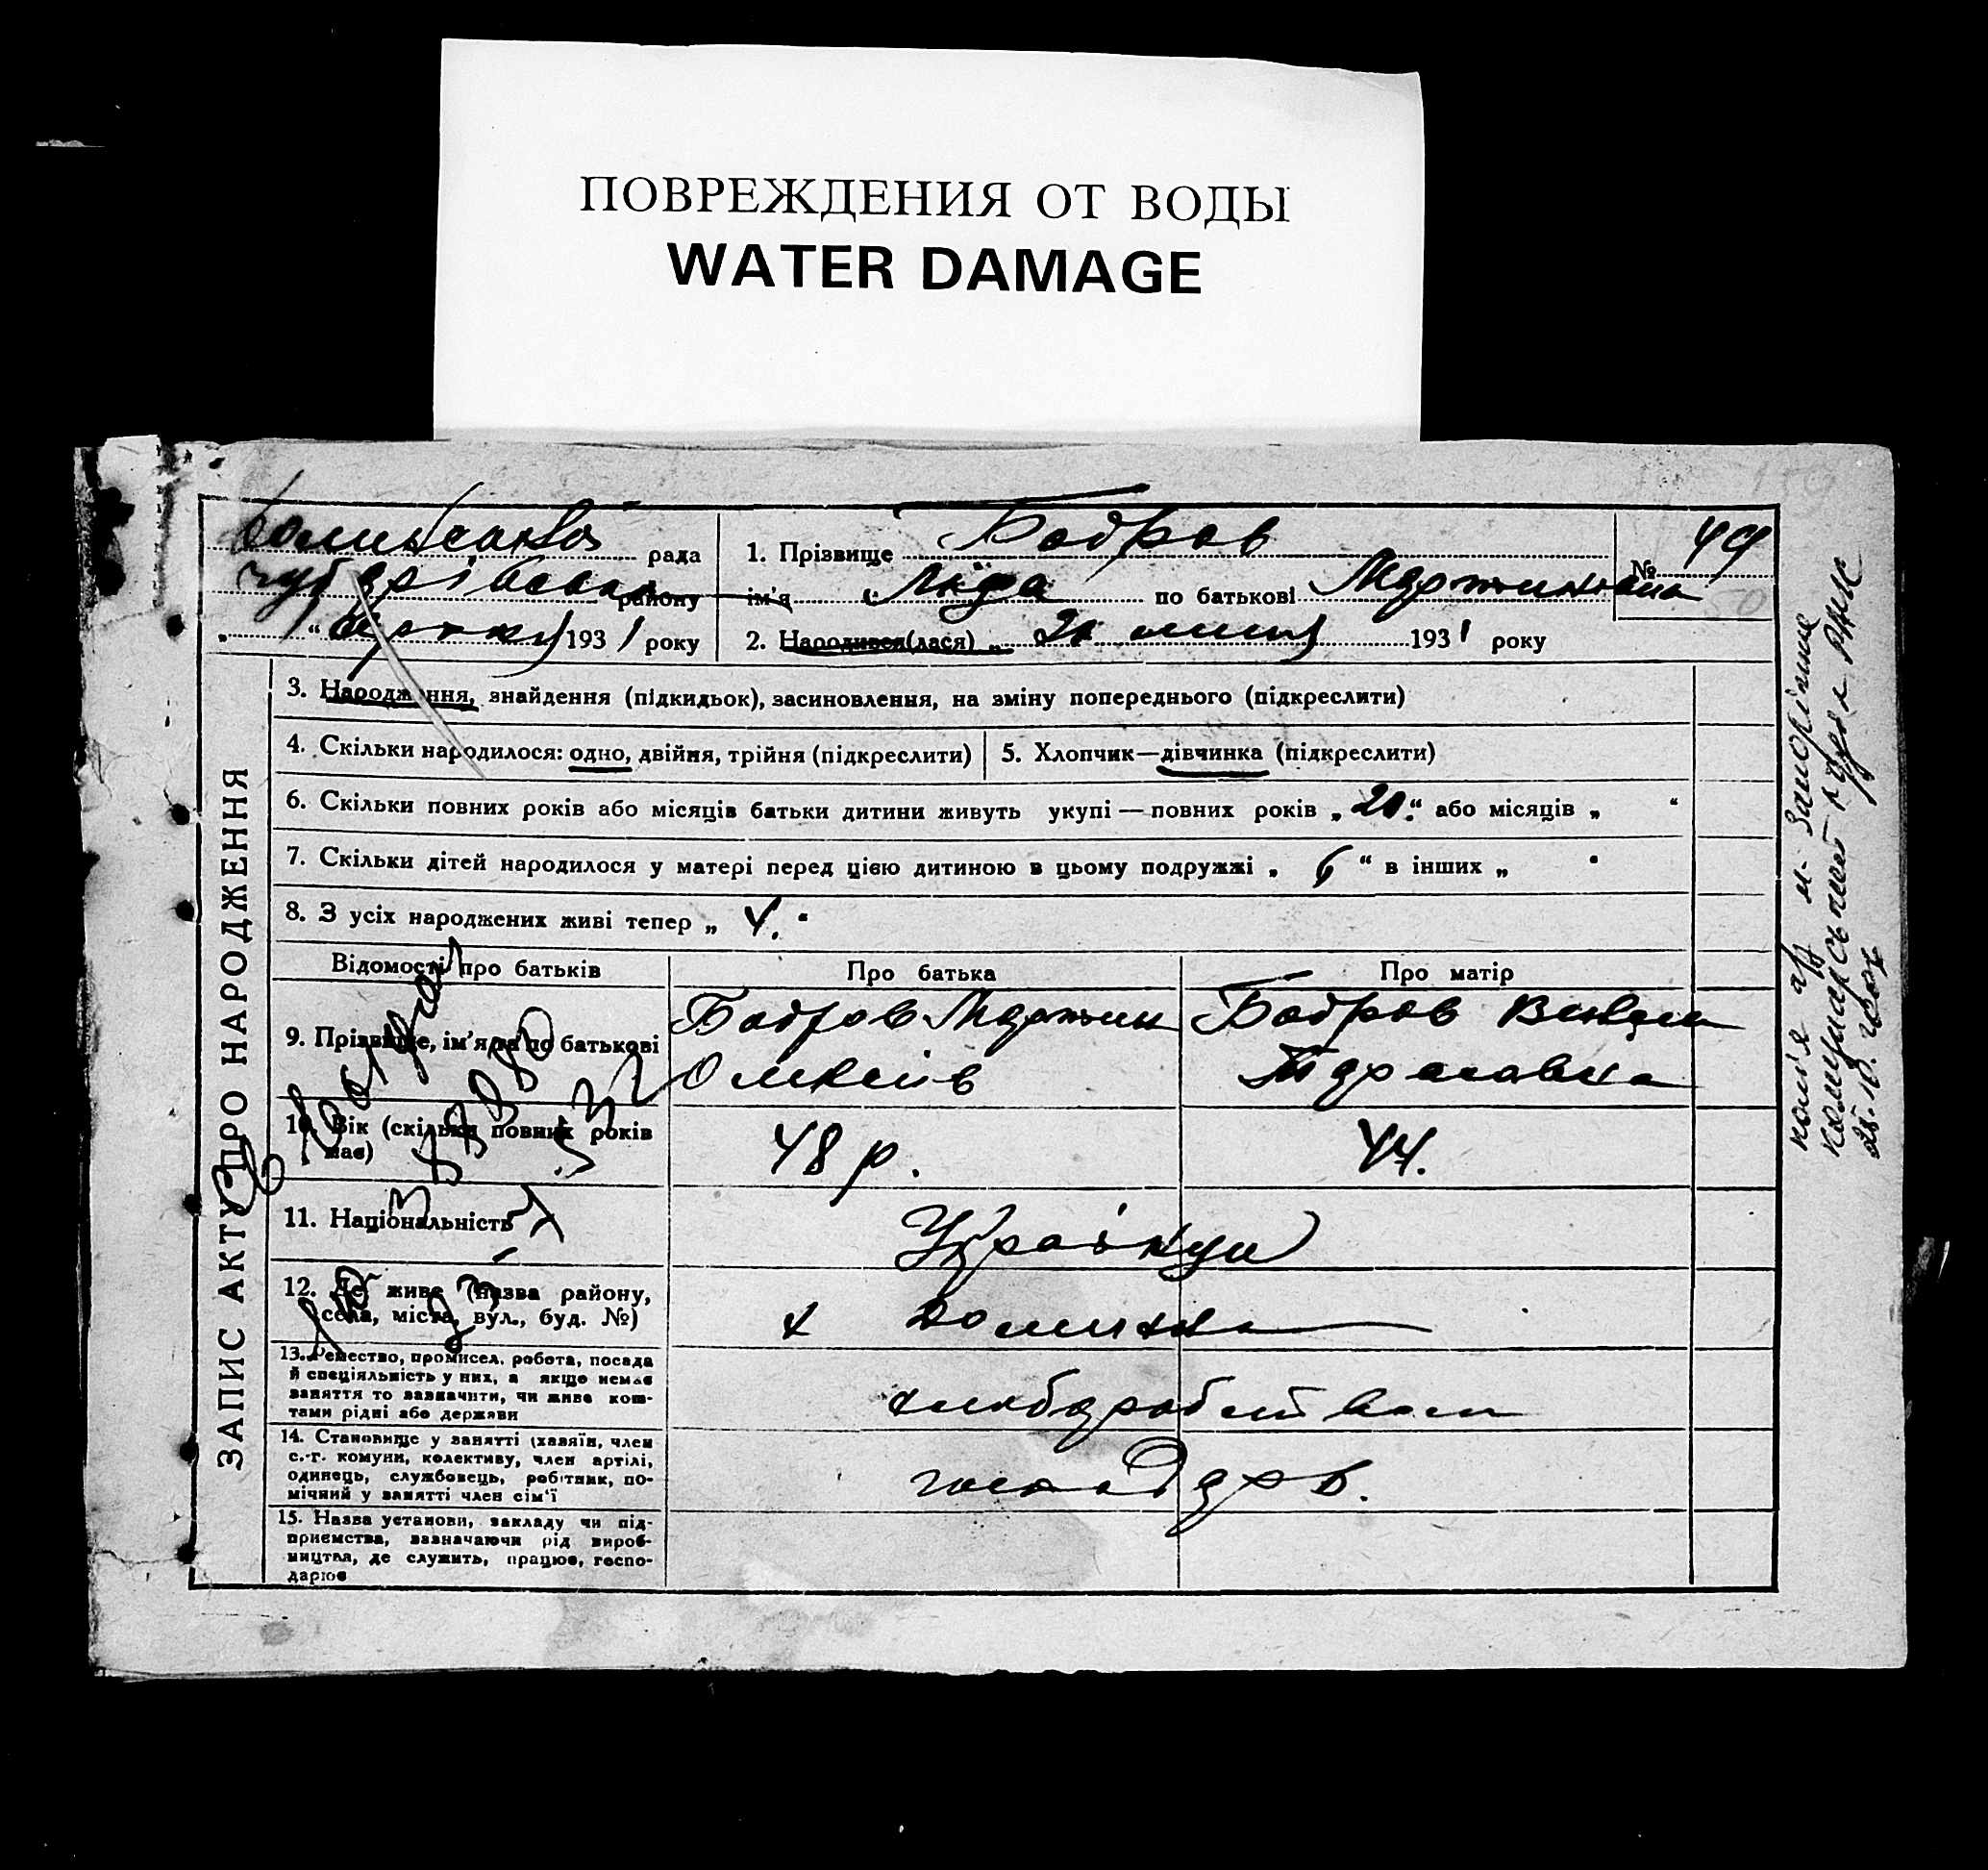 ПОВРЕЖДЕНИЯ ОТ ВОДЫ
WATER DAMAGE
рада
району
193 1 року
1. Прізвище Бодров
№ 49
ім'я Ліда по батькові Мартинівна
2. Народився(лася) „ 21 липня 193 1 року
3. Народження, знайдення (підкидьок), засиновлення, на зміну попереднього (підкреслити)
4. Скільки народилося: одно, двійня, трійня (підкреслити)
5. Хлопчик—дівчинка (підкреслити)
6. Скільки повних років або місяців батьки дитини живуть укупі — повних років „ 20 “ або місяців „ “
7. Скільки дітей народилося у матері перед цією дитиною в цьому подружжі „ 6 “ в інших „
8. З усіх народжених живі тепер „ 4. “
Відомості про батьків
Про батька
Про матір
9. Прізвище, ім'я та по батькові
Бодров Мартин
Бодров
10. Вік (скільки повних років має)
48 р.
44.
11. Національність
Українці
12. Де живе (назва району,
села, міста, вул., буд. №)
х Долинка
13. Ремество, промисел, робота, посада
й спеціяльність у них, а якщо немає
заняття то зазначити, чи живе кош-
тами рідні або держави
хлібаробством
14. Становище у занятті (хазяїн, член
с.-г. комуни, колективу, член артілі,
одинець, службовець, робітник, по-
мічний у занятті член сім'ї
господар
15. Назва установи, закладу чи під-
приємства, зазначаючи рід вироб-
ництва, де служить, працює, госпо-
дарює
ЗАПИС АКТУ ПРО НАРОДЖЕННЯ